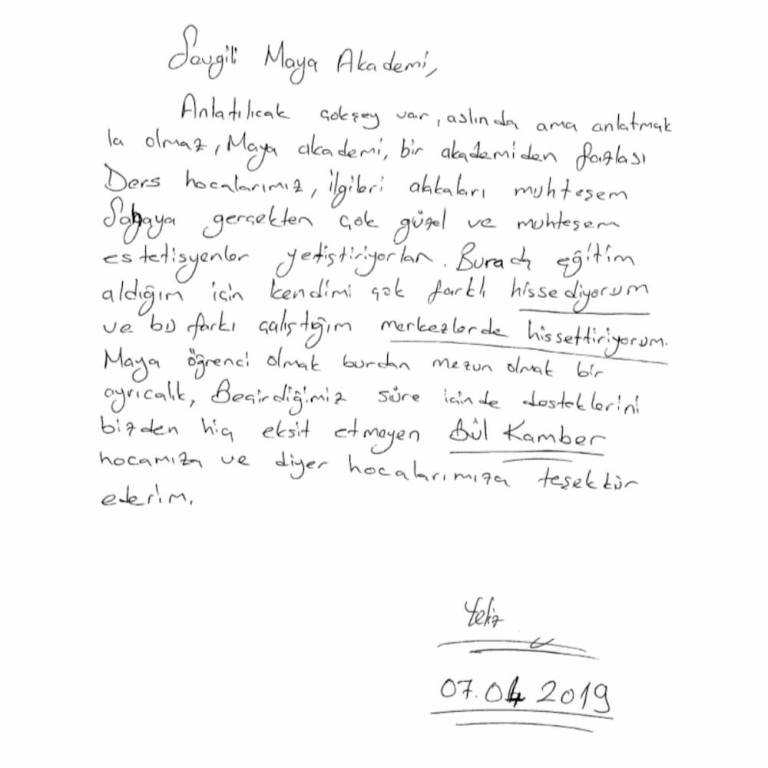 Saygili Maya Akademi,
Anlatılıcak çokşey var, aslında ama anlatmak
la olmaz, Maya akademi, bir akademiden fazlası
Ders hocalarımız, ilgileri alakaları muhteşem
Sahaya gerçekten çok güzel ve muhteşem
estetisyenler yetiştiriyorlar. Burada eğitim
aldığım için kendimi çok farklı hissediyorum
ve bu farkı çalıştığım merkezlerde hissettiriyorum.
Maya öğrenci olmak burdan mezun olmak bir
ayrıcalık, Geçirdiğimiz süre içinde desteklerini
bizden hiç eksit etmeyen Gül Kamber
hocamıza ve diyer hocalarımıza teşekkür
ederim.
Yeliz
07.04 2019